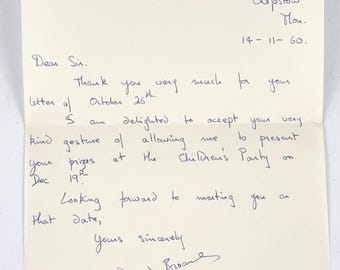 Chepstow
Mon.
14-11-60.
Dear Sir.
Thank you very much for your
letter of October 26th.
I am delighted to accept your very
kind gesture of allowing me to present
your prizes at the Children's Party on
Dec 19th.
Looking forward to meeting you on
that date,
Yours sincerely